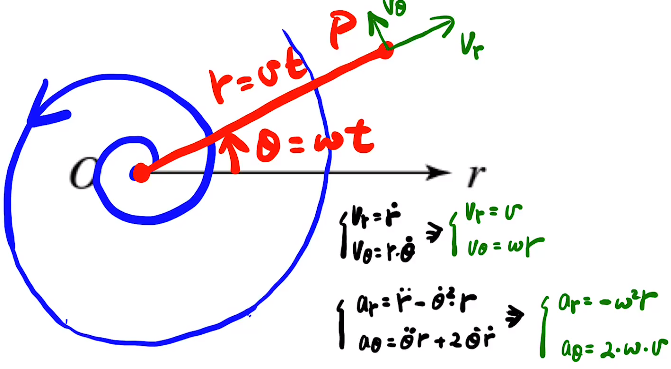 P
v_θ
v_r
r = vt
θ = ωt
O
r
{ v_r = ṙ
v_θ = r·θ̇ ⇒ { v_r = v
v_θ = ωr
{ a_r = r̈ − θ̇²·r
a_θ = θ̈r + 2θ̇ṙ ⇒ { a_r = −ω²r
a_θ = 2·ω·v